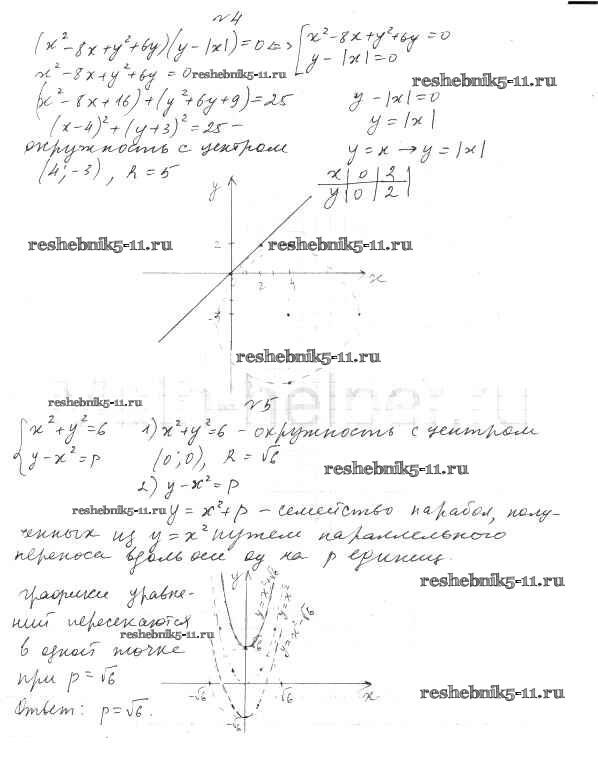 №4
(x²-8x+y²+6y)(y-|x|)=0 <=> [x²-8x+y²+6y=0
y-|x|=0
x²-8x+y²+6y=0 reshebnik5-11.ru
reshebnik5-11.ru
(x²-8x+16)+(y²+6y+9)=25
y-|x|=0
(x-4)²+(y+3)²=25 -
y=|x|
окружность с центром
y=x → y=|x|
(4;-3), R=5
x | 0 | 2
y | 0 | 2
y
reshebnik5-11.ru
2
reshebnik5-11.ru
2 4 x
reshebnik5-11.ru
reshebnik5-11.ru
№5
{x²+y²=6 1) x²+y²=6 - окружность с центром
y-x²=p (0;0), R=√6
reshebnik5-11.ru
2) y-x²=p
reshebnik5-11.ru y=x²+p - семейство парабол, полу-
ченных из y=x² путем параллельного
переноса вдоль оси oy на p единиц.
reshebnik5-11.ru
y
y=x²+√6
y=x²
y=x²-√6
Графики уравне-
ний пересекаются
reshebnik5-11.ru
в одной точке
при p=√6
Ответ: p=√6.
√6
-√6 √6 x
-√6
reshebnik5-11.ru